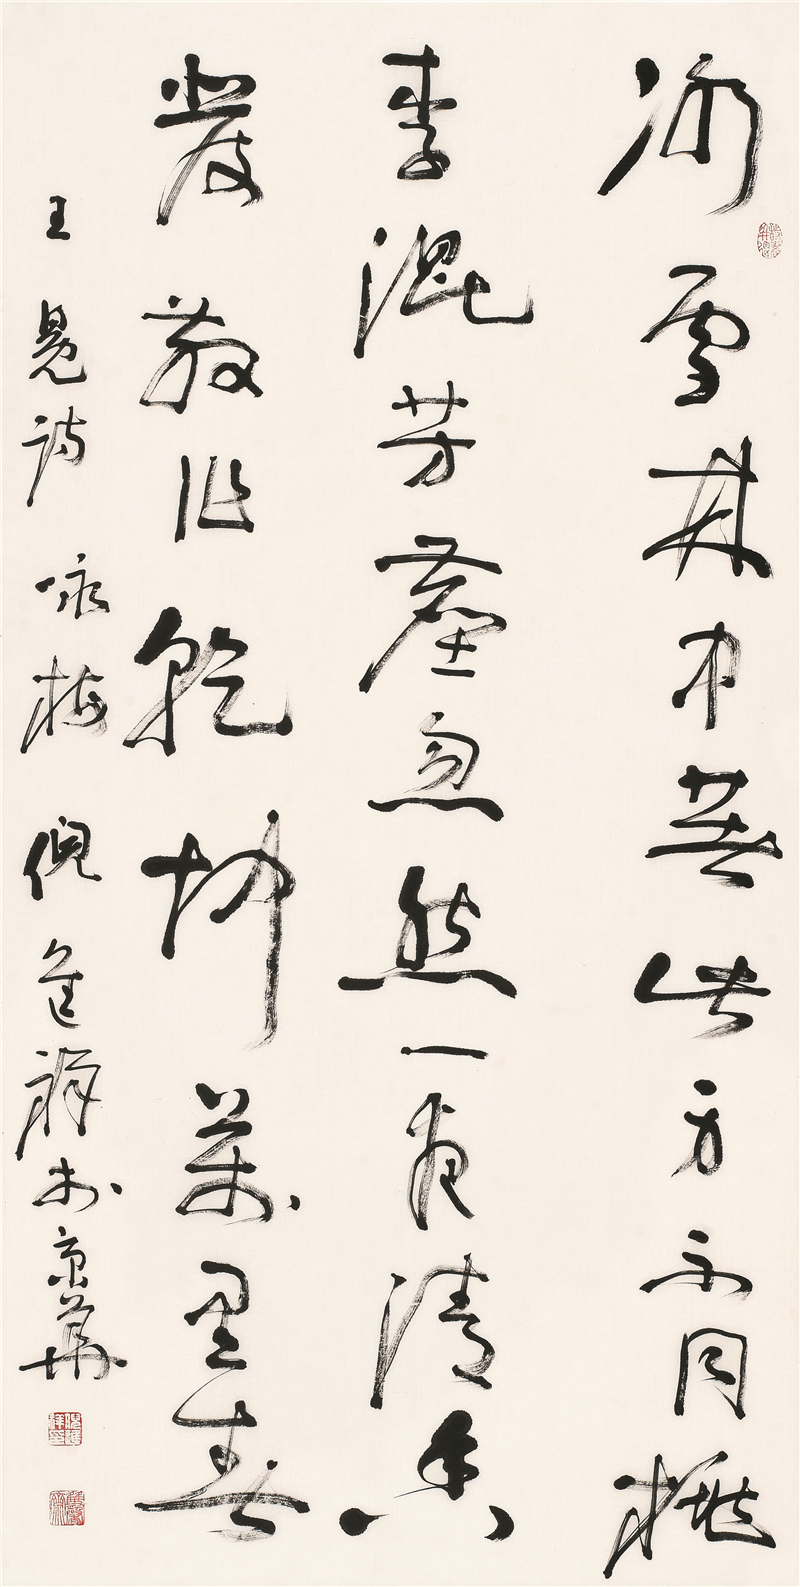 冰雪林中著此身不同桃
李混芳塵忽然一夜清香
發散作乾坤萬里春
王冕詩 咏梅 倪進祥於京華